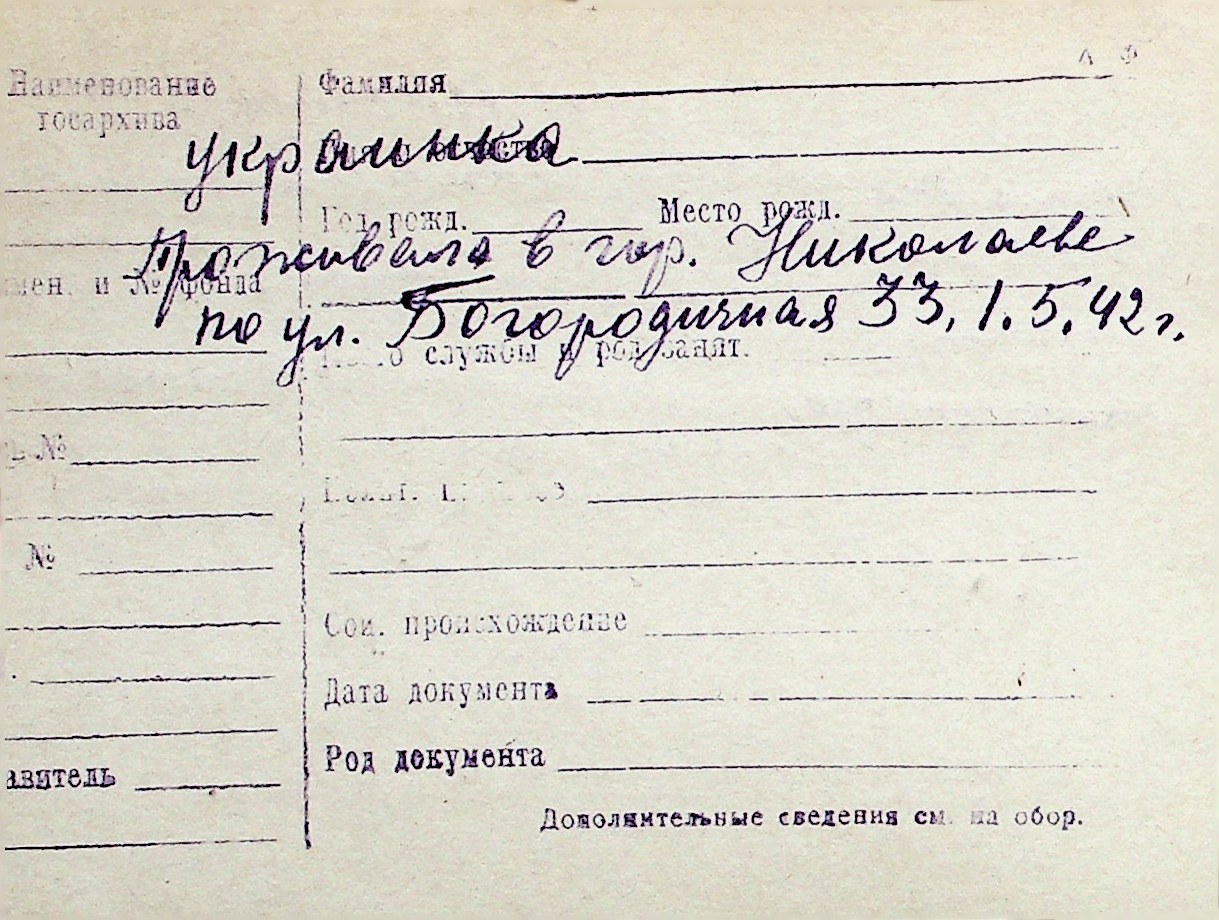 Л Ф
Наименование
госархива
Фамилия
украинка
Год рожд. Место рожд.
Проживала в гор. Николаеве
мен. и № фонда
по ул. Богородичная 33, 1.5.42 г.
службы и род занят.
№
№
Соц. происхождение
Дата документа
Род документа
авитель
Дополнительные сведения см. на обор.